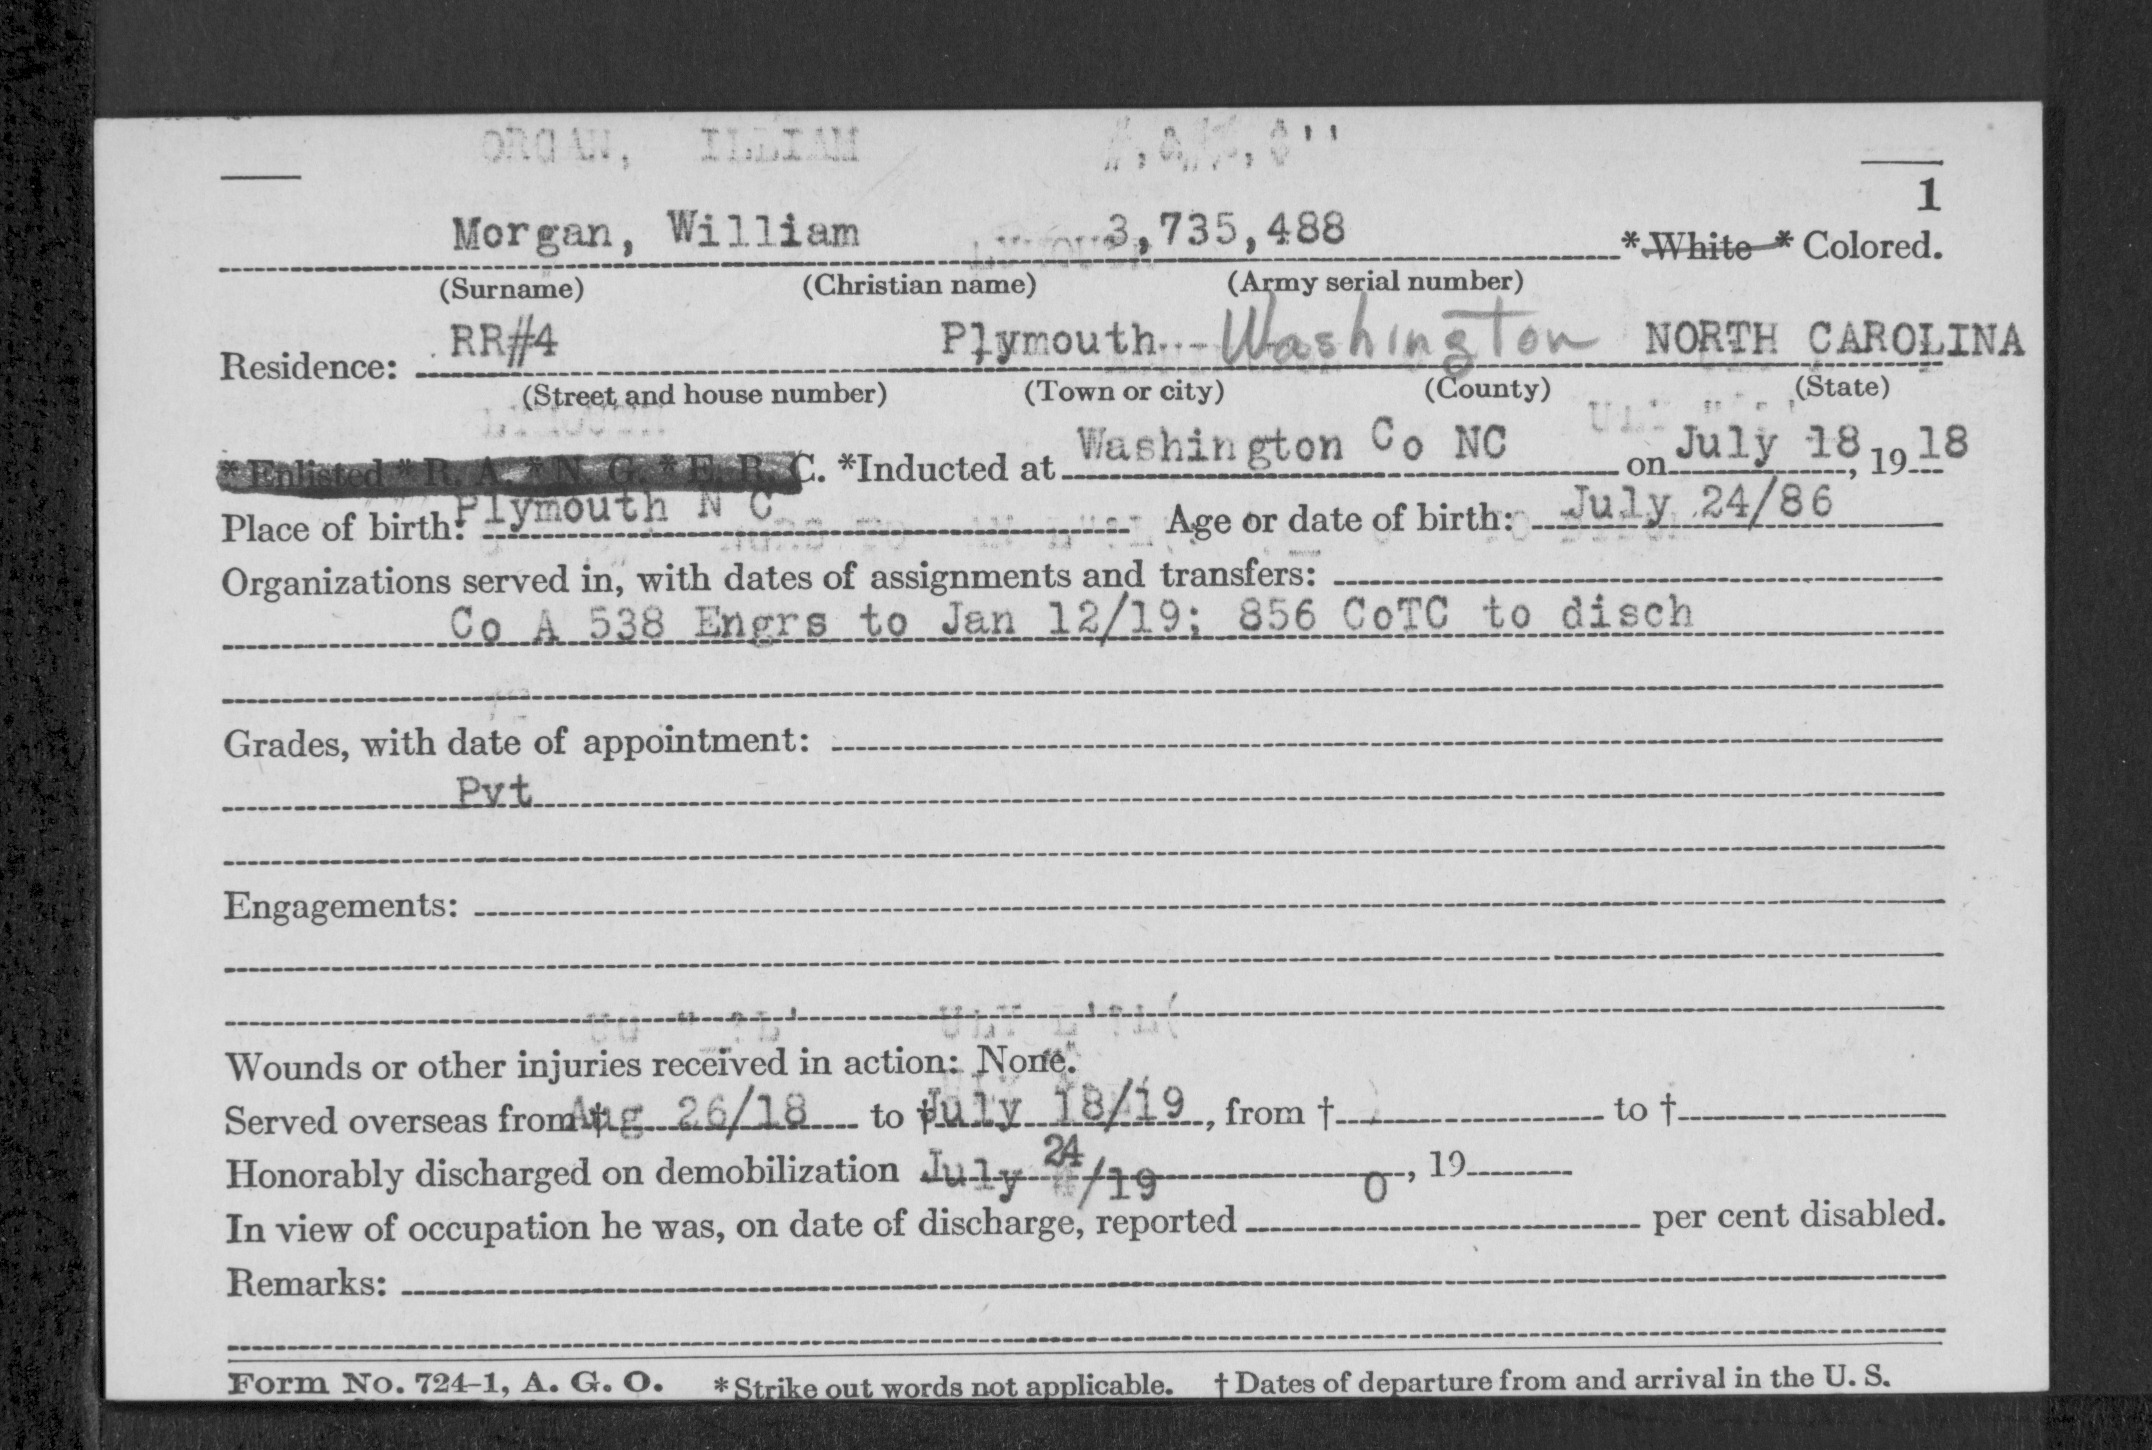 1
Morgan, William 3,735,488 * White * Colored.
(Surname) (Christian name) (Army serial number)
Residence: RR#4 Plymouth Washington NORTH CAROLINA
(Street and house number) (Town or city) (County) (State)
* Enlisted * R. A. * N. G. * E. R. C. *Inducted at Washington Co NC on July 18, 19 18
Place of birth: Plymouth N C Age or date of birth: July 24/86
Organizations served in, with dates of assignments and transfers:
Co A 538 Engrs to Jan 12/19; 856 CoTC to disch
Grades, with date of appointment:
Pvt
Engagements:
Wounds or other injuries received in action: None.
Served overseas from † Aug 26/18 to † July 18/19, from † to †
Honorably discharged on demobilization July 24/19, 19
In view of occupation he was, on date of discharge, reported 0 per cent disabled.
Remarks:
Form No. 724-1, A. G. O. * Strike out words not applicable. † Dates of departure from and arrival in the U. S.